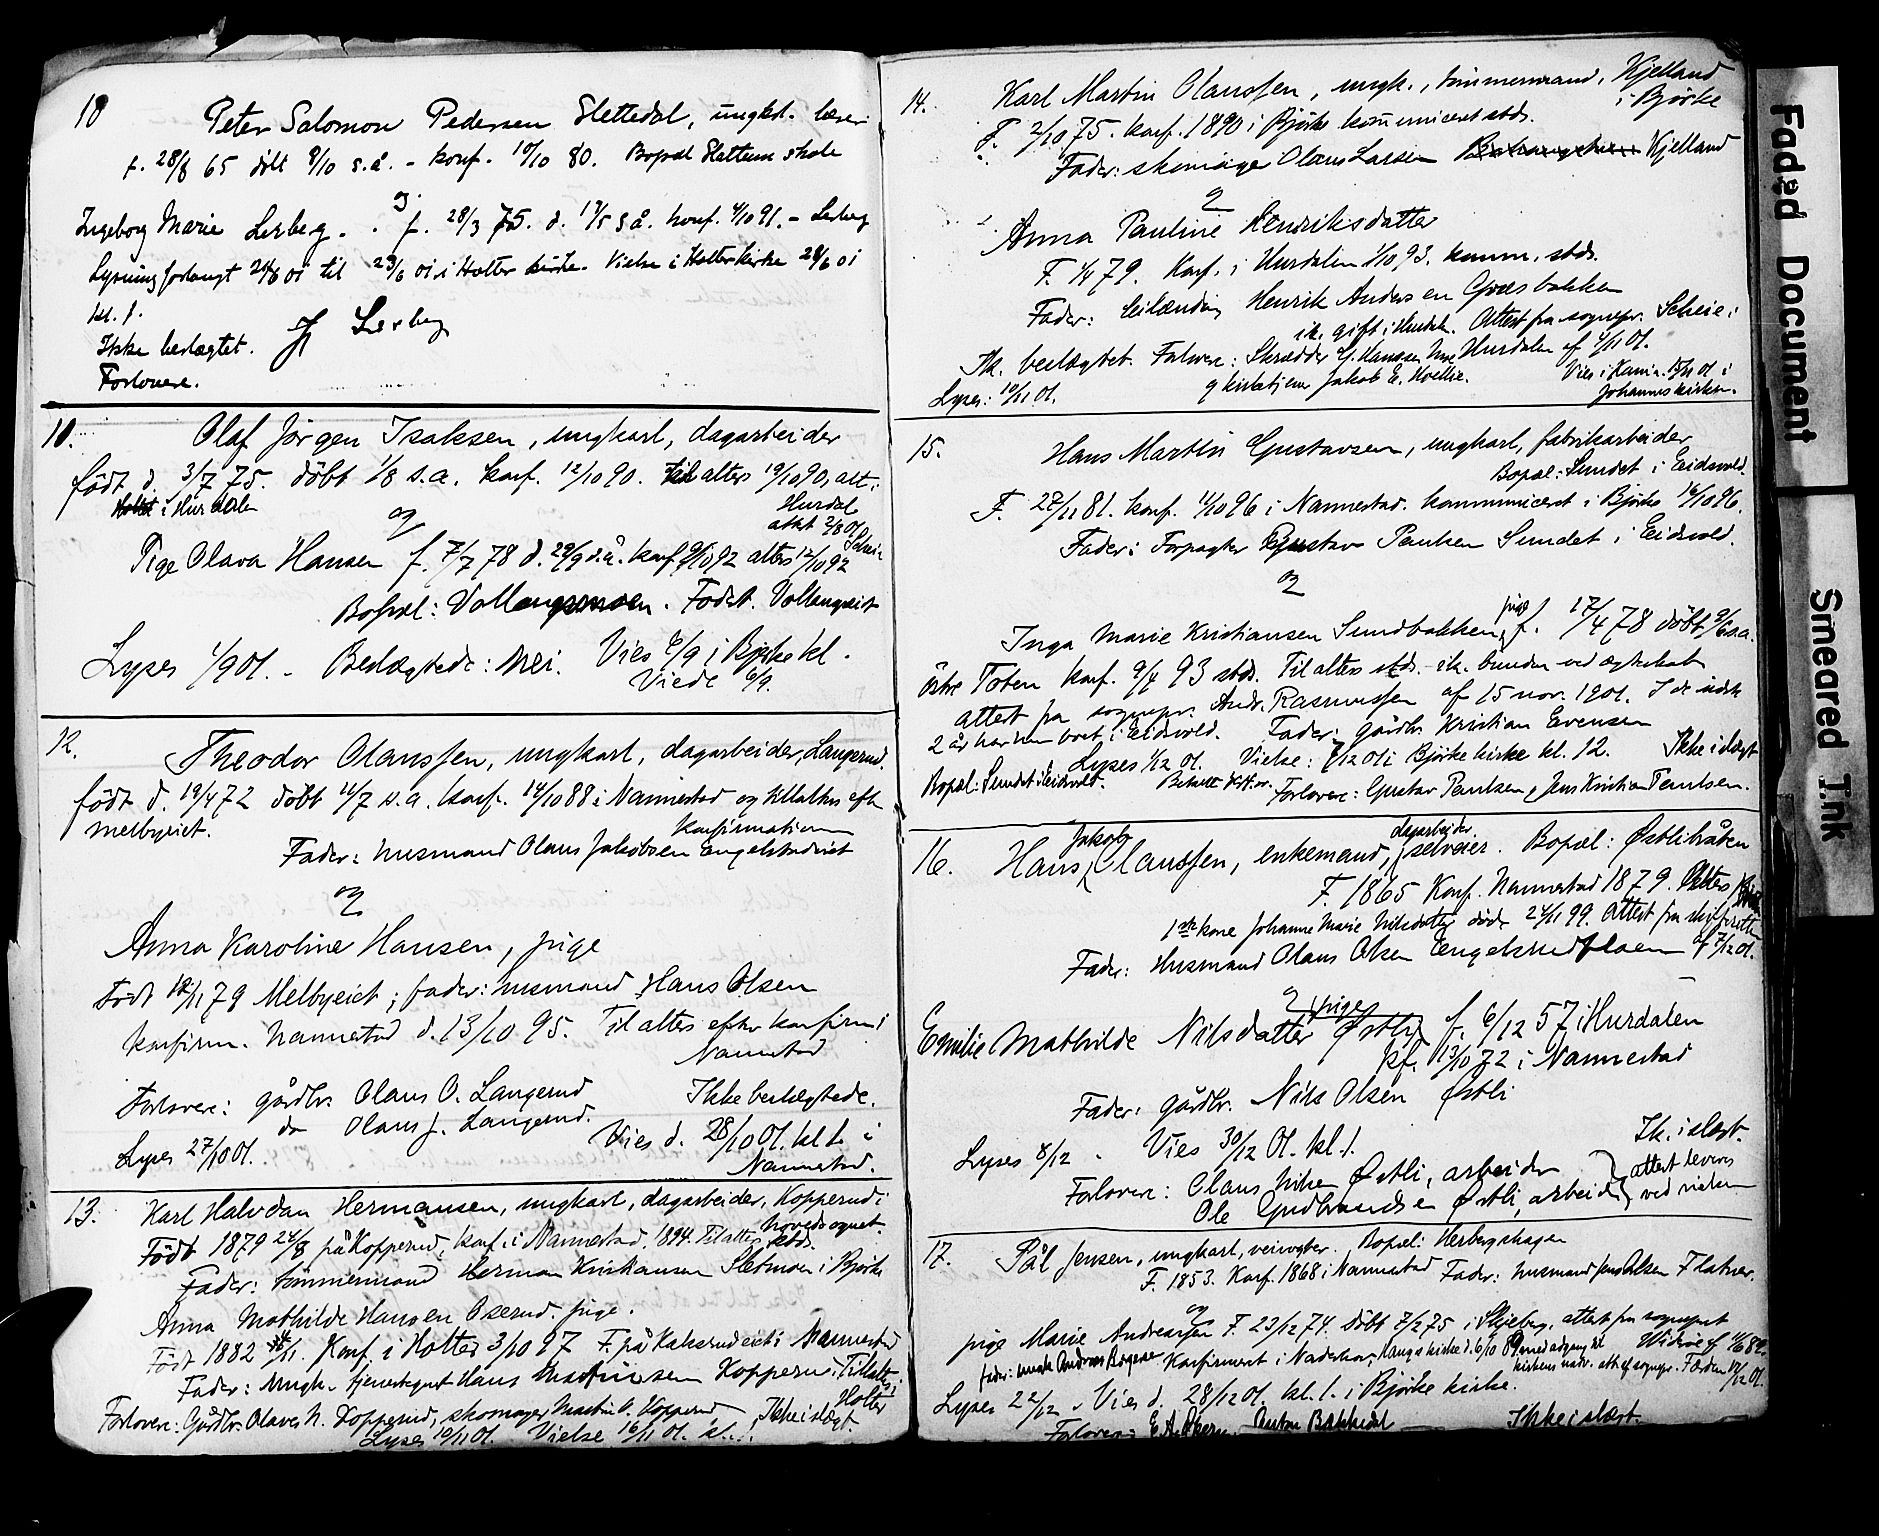 10
Peter Salomon Pedersen Slettedal, ungkl. lærer
f. 28/8 65 döbt 8/10 s.å. - konf. 10/10 80. Bopæl Slettum skole
og
Ingeborg Marie Lerberg - f. 28/3 75. d. 17/5 s å. konf. 4/10 91. - Lerberg
Lysning forlangt til 23/6 01 i Holter kirke. Vielse i Holter kirke 01
kl. 1.
Ikke beslægtet. Lerberg
Forlovere.
Olaf Jörgen Isaksen, ungkarl, dagarbeider
født d. 3/7 75. döbt 1/8 s.a. konf. 12/10 90. til alters 19/10 90, alt i
i Hurdalen Hurdal
og attest 2/8 01
Pige Olava Hansen f. 7/7 78 d. 29/9 s.å. konf. 9/10 92 alters 12/10 92
Bopæl: Vollaugsmoen. Födt. Vollaugseiet
Lyses 1/9 01. - Beslægtede: Nei. Vies 6/9 i Bjerke kl.
Viede 6/9.
12.
Theodor Olaussen, ungkarl, dagarbeider, Langerud.
født d. 19/4 72 döbt 14/7 s.a. konf. 14/10 88 i Nannestad og til alters efter
Melbyeiet. Konfirmationen
Fader: husmand Olaus Jakobsen Engelstadeiet
og
Anna Karoline Hansen, pige
Født 18/11 79 Melbyeiet; fader: husmand Hans Olsen
konfirm. Nannestad d. 13/10 95. Til alters efter konfirm i
Nannestad
Forlovere: gårdbr. Olaus O. Langerud Ikke beslægtede.
do Olaus J. Langerud.
Lyses 27/10 01. Vies d. 28/10 01. kl. 1. i
Nannestad.
13. Karl Halvdan Hermansen, ungkarl, dagarbeider, Kopperud i
hovedsognet.
Födt 1879 24/8 på Kopperud, konf. i Nannestad. 1894. Til alters stds.
Fader: tömmermand Herman Kristiansen Sletmoen i Bjerke
Anna Mathilde Hansen Oserud. pige.
Födt 1882 Konf. i Holter 3/10 97 F. på Kakserudeiet i Nannestad
Fader: ungk. tjenestegut Hans Kopperud Til alters i
Holter
Forlovere: Gårdbr. Olaves N. Kopperud, skomager Martin O. Kopperud Ikke i slægt.
Lyses 10/11 01. Vielse 16/11 01. kl. 1.
14. Karl Martin Olaussen, ungk., tömmermand, Kjelland
i Bjerke
F. 2/10 75. konf. 1890 i Bjerke kommuniceret stds.
Fader: skomager Olaus Larsen Kjelland
og
Anna Pauline Henriksdatter
F. 1/4 79. Konf. i Hurdalen 1/10 93. komm. stds.
Fader: Henrik Andersen Græsbakken
ik. gift i Hurdal. Attest fra sognepr. Scheie i
Ik. beslægtet. Forlovere: Skrædder Hansen Hurdalen af 4/11 01.
og kirketjener Jakob E. Vies i Kania 01 i
Lyses: 10/11 01. Johanneskirken.
15. Hans Martin Gustavsen, ungkarl, fabrikarbeider
Bopæl: Sundet i Eidsvold.
F. 27/11 81. konf. 4/10 96 i Nannestad. kommuniceret i Bjerke 16/10 96.
Fader: Forpagter Gustav Paulsen Sundet i Eidsvold.
og
Inga Marie Kristiansen Sundbakken, pige f. 17/4 78 döbt 9/6 s.a.
Östre Toten konf. 9/4 93 stds. Til alters stds. ik. bunden ved ægteskab
attest fra sognepr. Andr. Rasmussen af 15 nov. 1901. I de sidste
2 år har hun boet i Eidsvold. Fader: gårdbr. Kristian Evensen
Lyses 1/12 01. Vielse: 7/12 01 i Bjerke kirke kl. 12. Ikke i slægt
Bopæl: Sundet i Eidsvold. Forlovere: Gustav Paulsen, Jens Kristian Paulsen.
16. Hans Jakob Olaussen, enkemand, dagarbeider selveier. Bopæl: Østlibråten
F. 1865 Konf. Nannestad 1879. Alters
1ste kone Johanne Marie Nilsdatter døde 24/11 99. Attest fra skifteretten
af 7/12 01.
Fader: Husmand Olaus Olsen Engelsrudflaen
og
Emilie Mathilde Nilsdatter Østli, pige f. 6/12 57 i Hurdalen
kf. 13/10 72 i Nannestad
Fader: gårdbr. Nils Olsen Østli
Lyses 8/12 - Vies 30/12 01. kl. 1. Ik. i slægt.
Forlovere: Olaus Østli, arbeider attest leveres
Ole Gudbrandsen Østli, arbeider ved vielsen
17. Pål Jensen, ungkarl, veivogter. Bopæl: Herbergshagen
F. 1853. Konf. 1868 i Nannestad Fader: husmand Jens Olsen Flatner.
og
pige Marie Andreassen F. 23/12 74. Döbt 7/2 75 i Skjeberg, attest fra sogneprest
fader: ungk. Andreas Konfirmeret i 6/10 89 med adgang til
kirkens nadv. att. af sognepr. 01.
Lyses 22/12. Vies d. 28/12 01. kl. 1. i Bjerke kirke.
Forlovere: Anton Bakkedal Ikke i slægt.
Faded Document
Smeared Ink